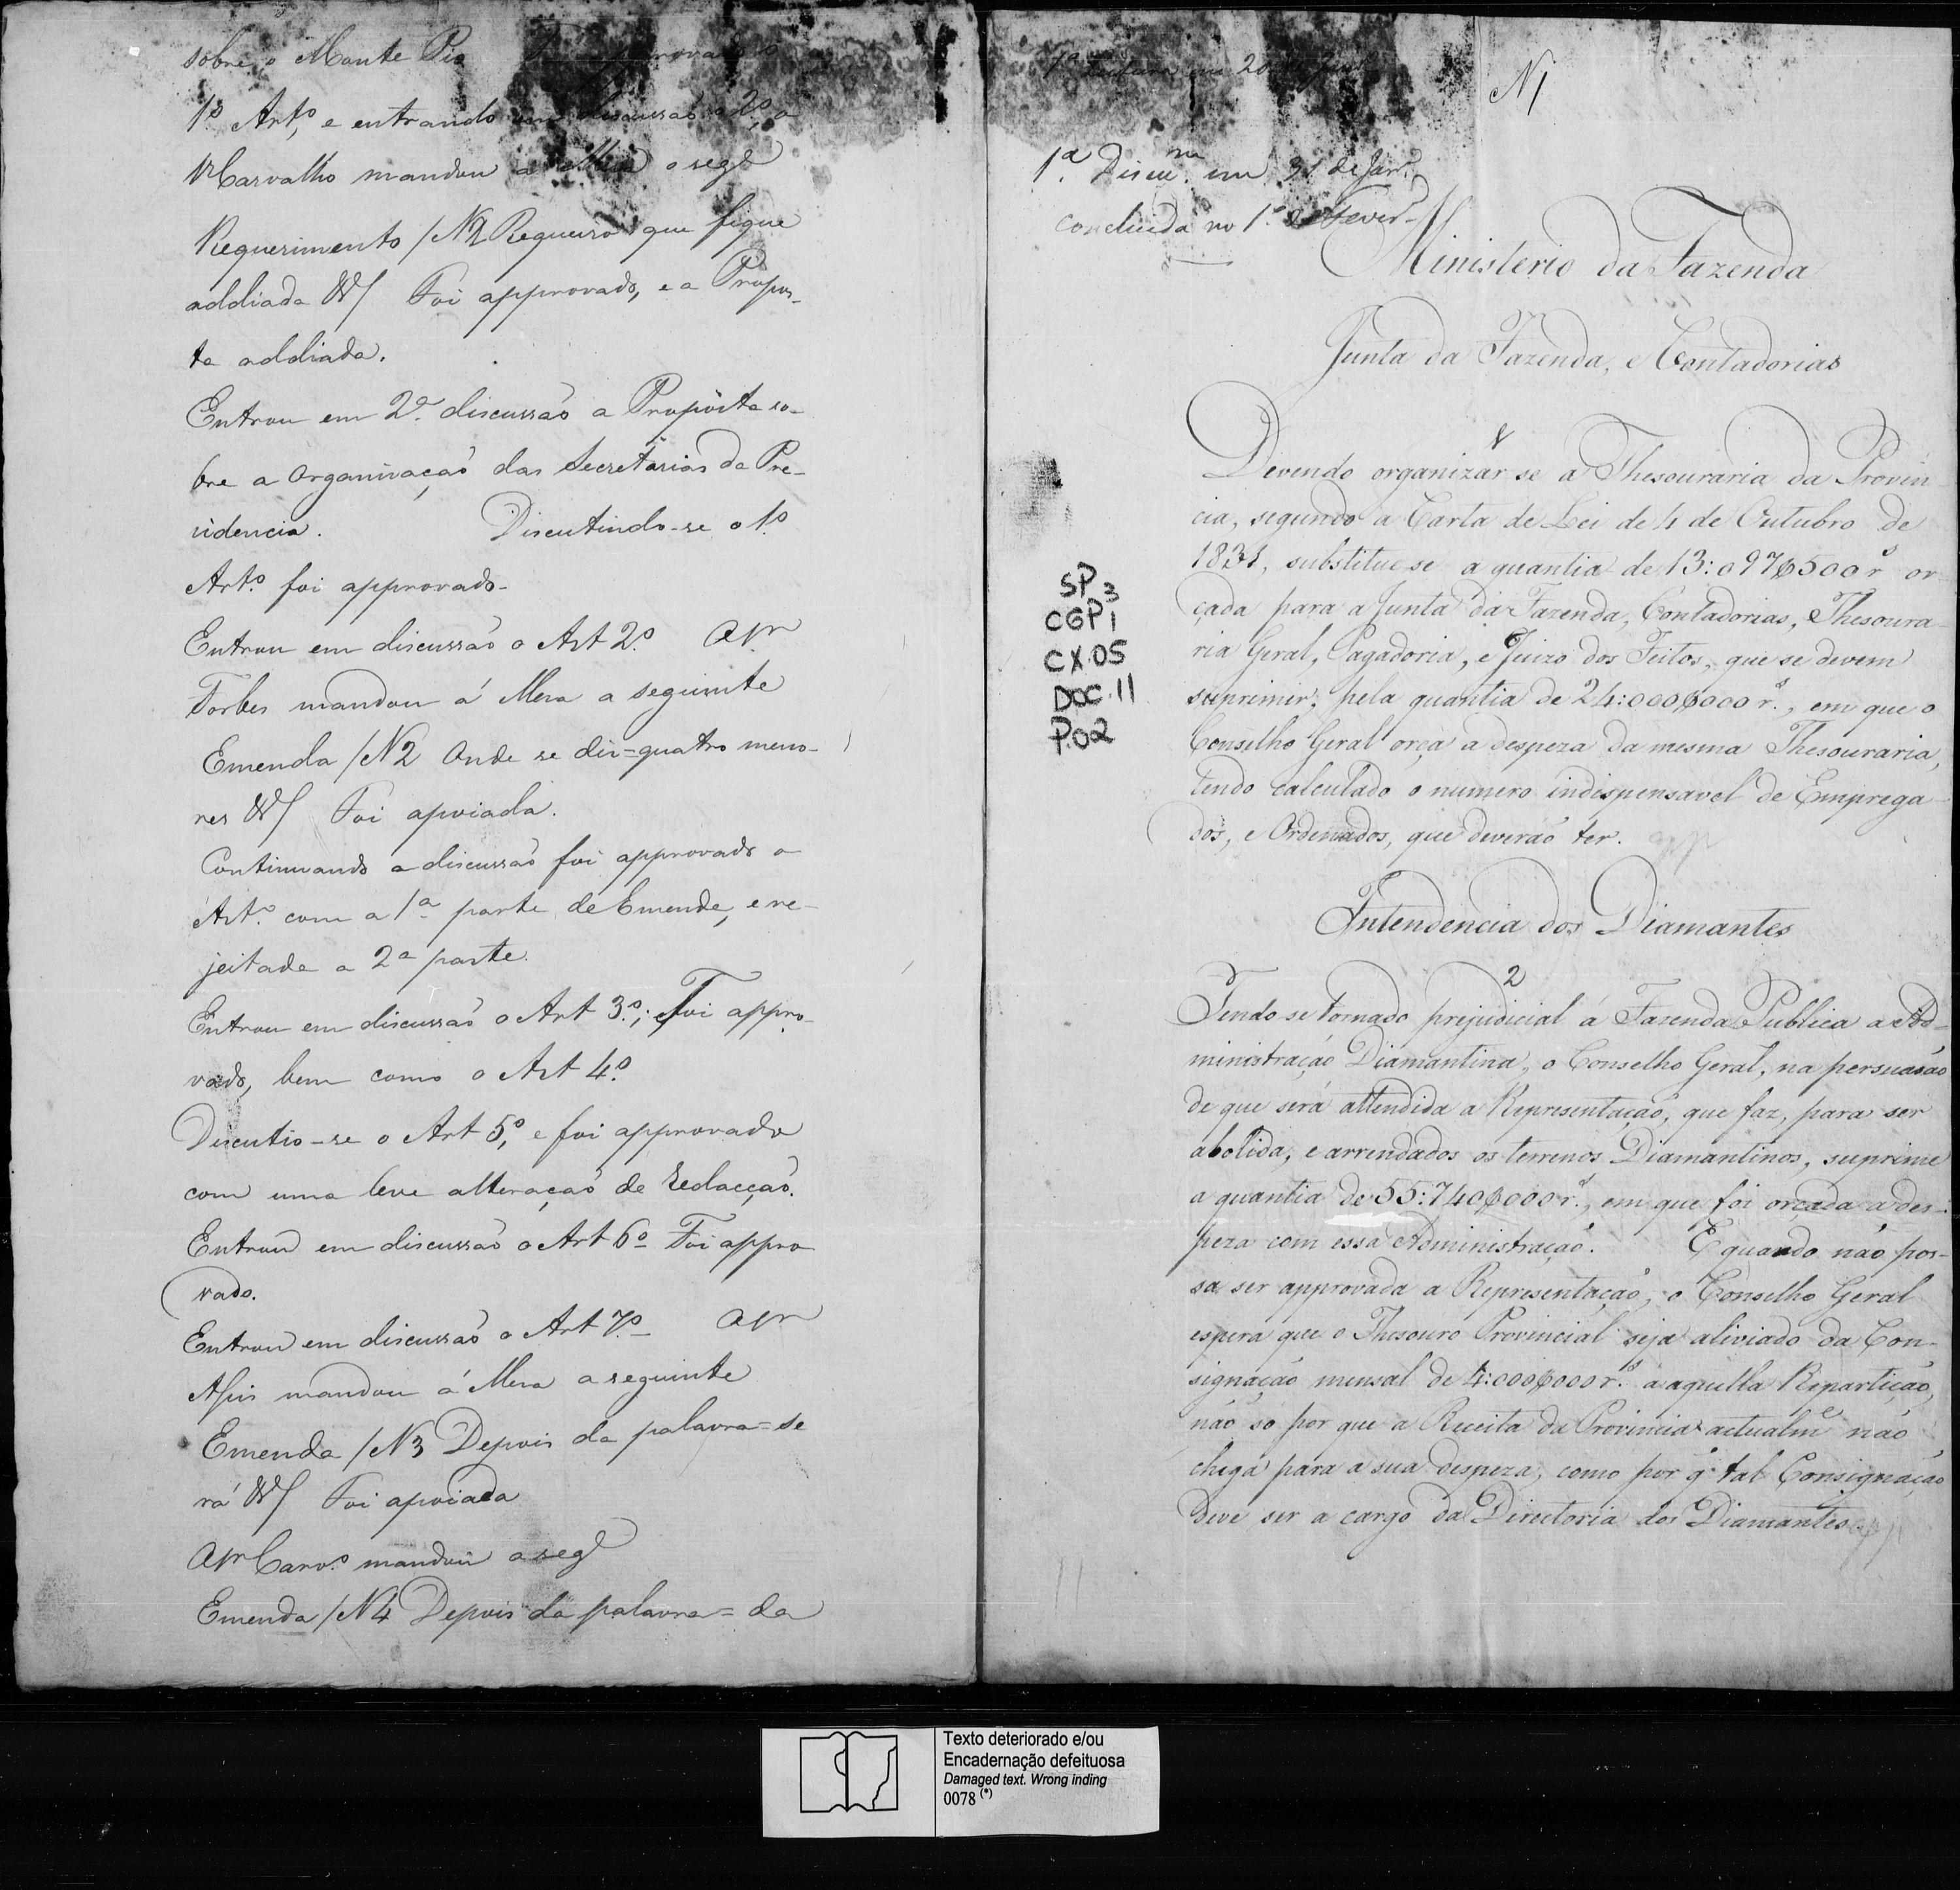 sobre o Monte Pio
1º Artº, e entrando em discussaõ o 2º, o
Carvalho mandou a Meza o segᵉ
Requerimento /N1 Requeiro que fique
addiada &/ Foi approvado, e a Propos-
ta addiada.
Entrou em 2ª discussaõ a Propósta so-
bre a organizaçaõ das Secretarias da Pre-
sidencia. Discutindo-se o 1º
Artº foi approvado-
Entrou em discussaõ o Art 2º. O Sr
Forbes mandou á Meza a seguinte
Emenda /N2 Onde se diz=quatro meno-
res &/ Foi apoiada.
Continuando a discussaõ foi approvado o
Artº. com a 1ª parte da Emenda, e re-
jeitada a 2ª parte.
Entrou em discussaõ o Art 3º; e Foi appro-
vado, bem como o Art 4º
Discutio-se o Art 5º, e foi approvado
com uma leve alteraçaõ de redacçaõ.
Entrou em discussaõ o Art 6º Foi appro
vado.
Entrou em discussaõ o Art 7º- O Sr
Assis mandou á Meza a seguinte
Emenda /N3 Depois da palavra=se
rá &/ Foi apoiada
O Sr Carvº mandou a segᵉ
Emenda /N4 Depois da palavra=da
N1
1ª Discuᵐ em 31 de Janº
concluida no 1º de Feverº
Ministerio da Fazenda
Junta da Fazenda, e Contadorias
1
Devendo organizar se a Thesouraria da Provin
cia, segundo a Carta de Lei de 4 de Outubro de
1831, substitue se a quantia de 13:097$500 rˢ or
çada para a Junta da Fazenda, Contadorias, Thesoura-
ria Geral, Pagadoria, e Juizo dos Feitos, que se devem
suprimir; pela quantia de 24:000$000 rˢ, em que o
Conselho Geral orça a despeza da mesma Thesouraria,
tendo calculado o numero indispensavel de Emprega-
dos, e Ordenados, que deveráõ ter.
SP
CGP1 3
CX.05
DOC.11
P.02
Intendencia dos Diamantes
2
Tendo se tornado prejudicial á Fazenda Publica a Ad-
ministraçaõ Diamantina, o Conselho Geral, na persuasaõ
de que será attendida a Representaçaõ, que faz, para ser
abolida, e arrendados os terrenos Diamantinos, suprime
a quantia de 55:740$000 rˢ, em que foi orçada a des-
peza com essa Administraçaõ. E quando naõ pos-
sa ser approvada a Representaçaõ, o Conselho Geral
espera que o Thesouro Provincial seja aliviado da Con-
signaçaõ mensal de 4:000$000 rˢ a aquella Repartiçaõ,
naõ só por que a Receita da Provincia actualmᵉ naõ
chega para a sua despeza, como por q̃ tal Consignaçaõ
deve ser a cargo da Directoria dos Diamantes
Texto deteriorado e/ou
Encadernação defeituosa
Damaged text. Wrong inding
0078 (*)